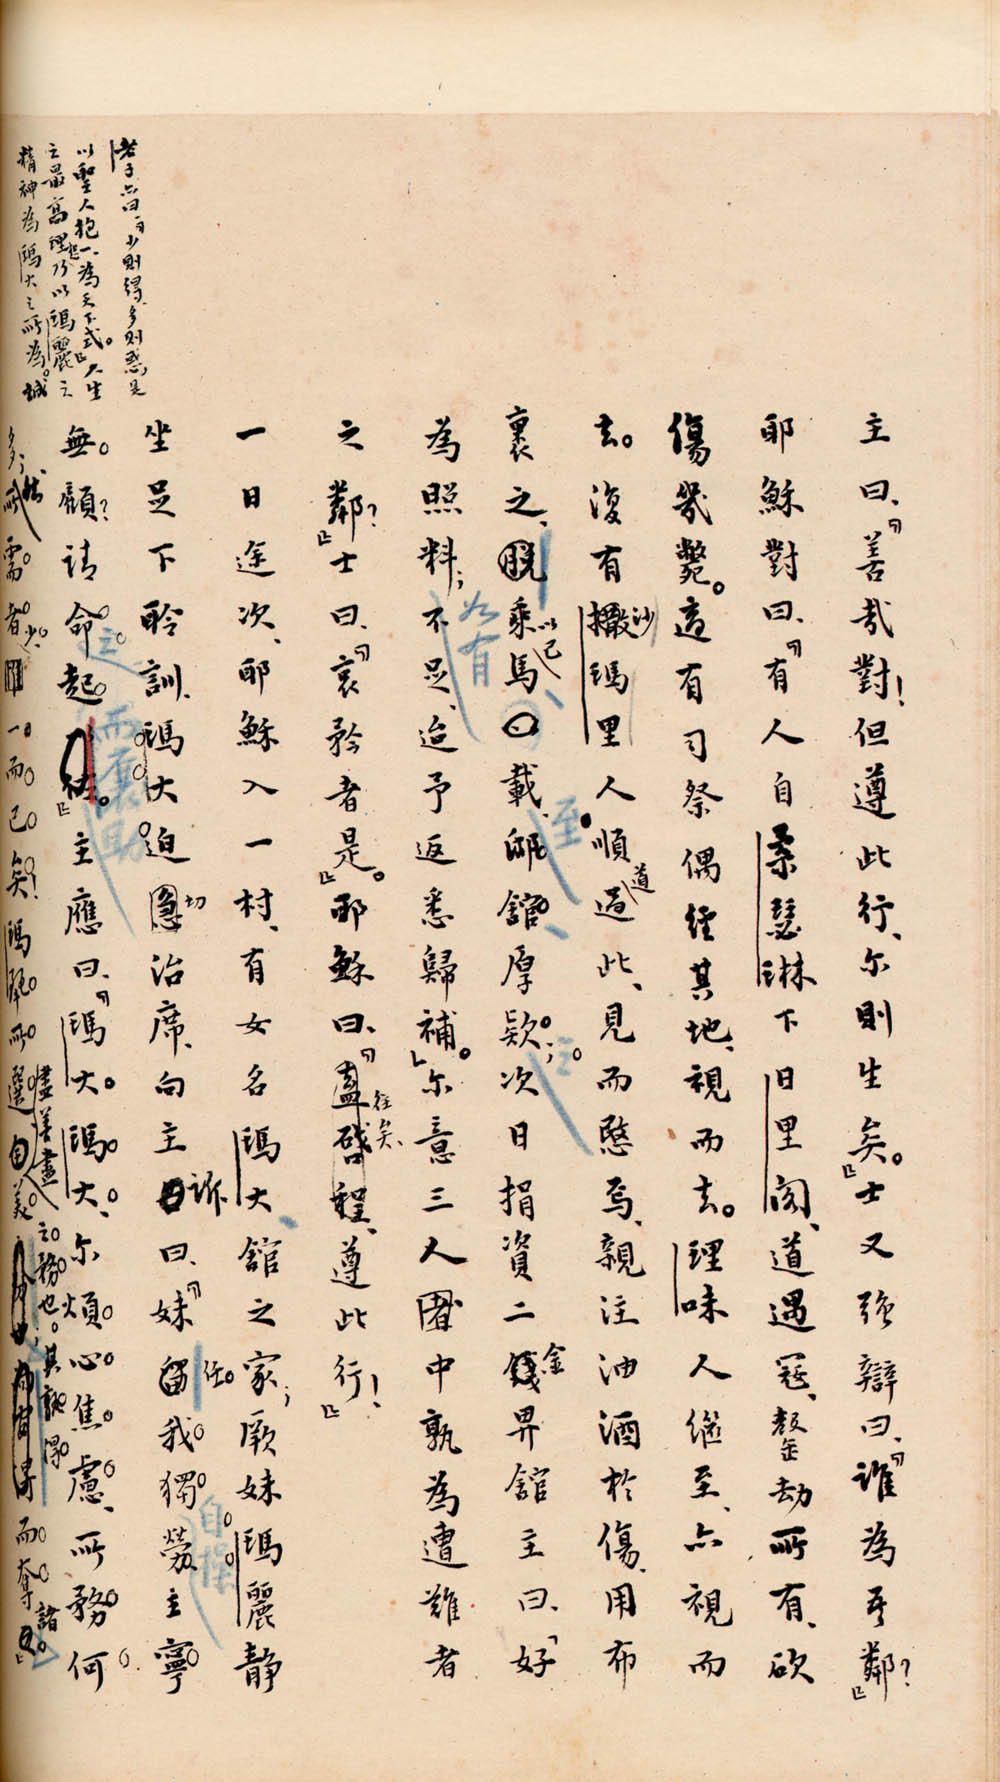 主曰、「善哉對！但遵此行、尔則生矣。」士又強辯曰、「誰為吾鄰？」
耶穌對曰、「有人自柔瑟琳下日里閣、道遇寇、罄劫所有、砍
傷幾斃。適有司祭偶經其地、視而去。理味人繼至、亦視而
去。復有撒沙瑪里人順道過此、見而愍焉、親注油酒於傷、用布
裹之、脫乘以己馬載至邸舘、厚欵之；次日捐資二錢金畀舘主曰、「好
為照料；如有不足、迨予返悉歸補。」尔意三人者中孰為遭難者
之鄰？」士曰、「哀矜者是。」耶穌曰、「盍往矣、啟程、遵此行！」
一日途次、耶穌入一村、有女名瑪大、舘之家；厥妹瑪麗靜
坐足下聆訓、瑪大迫切治席、向主訴曰、「妹留任我獨自操勞、主寧
無顧？請命之起而襄助。」主應曰、「瑪大。瑪大、尔煩心焦慮、所務何
多；然所需者少、一而已矣！瑪麗所選盡美盡美之務也；其孰得而奪諸。」
老子亦曰、「少則得、多則惑、是
以聖人抱一、為天下式。」人生
之最高理想乃以瑪麗之
精神為瑪大之所為。誠